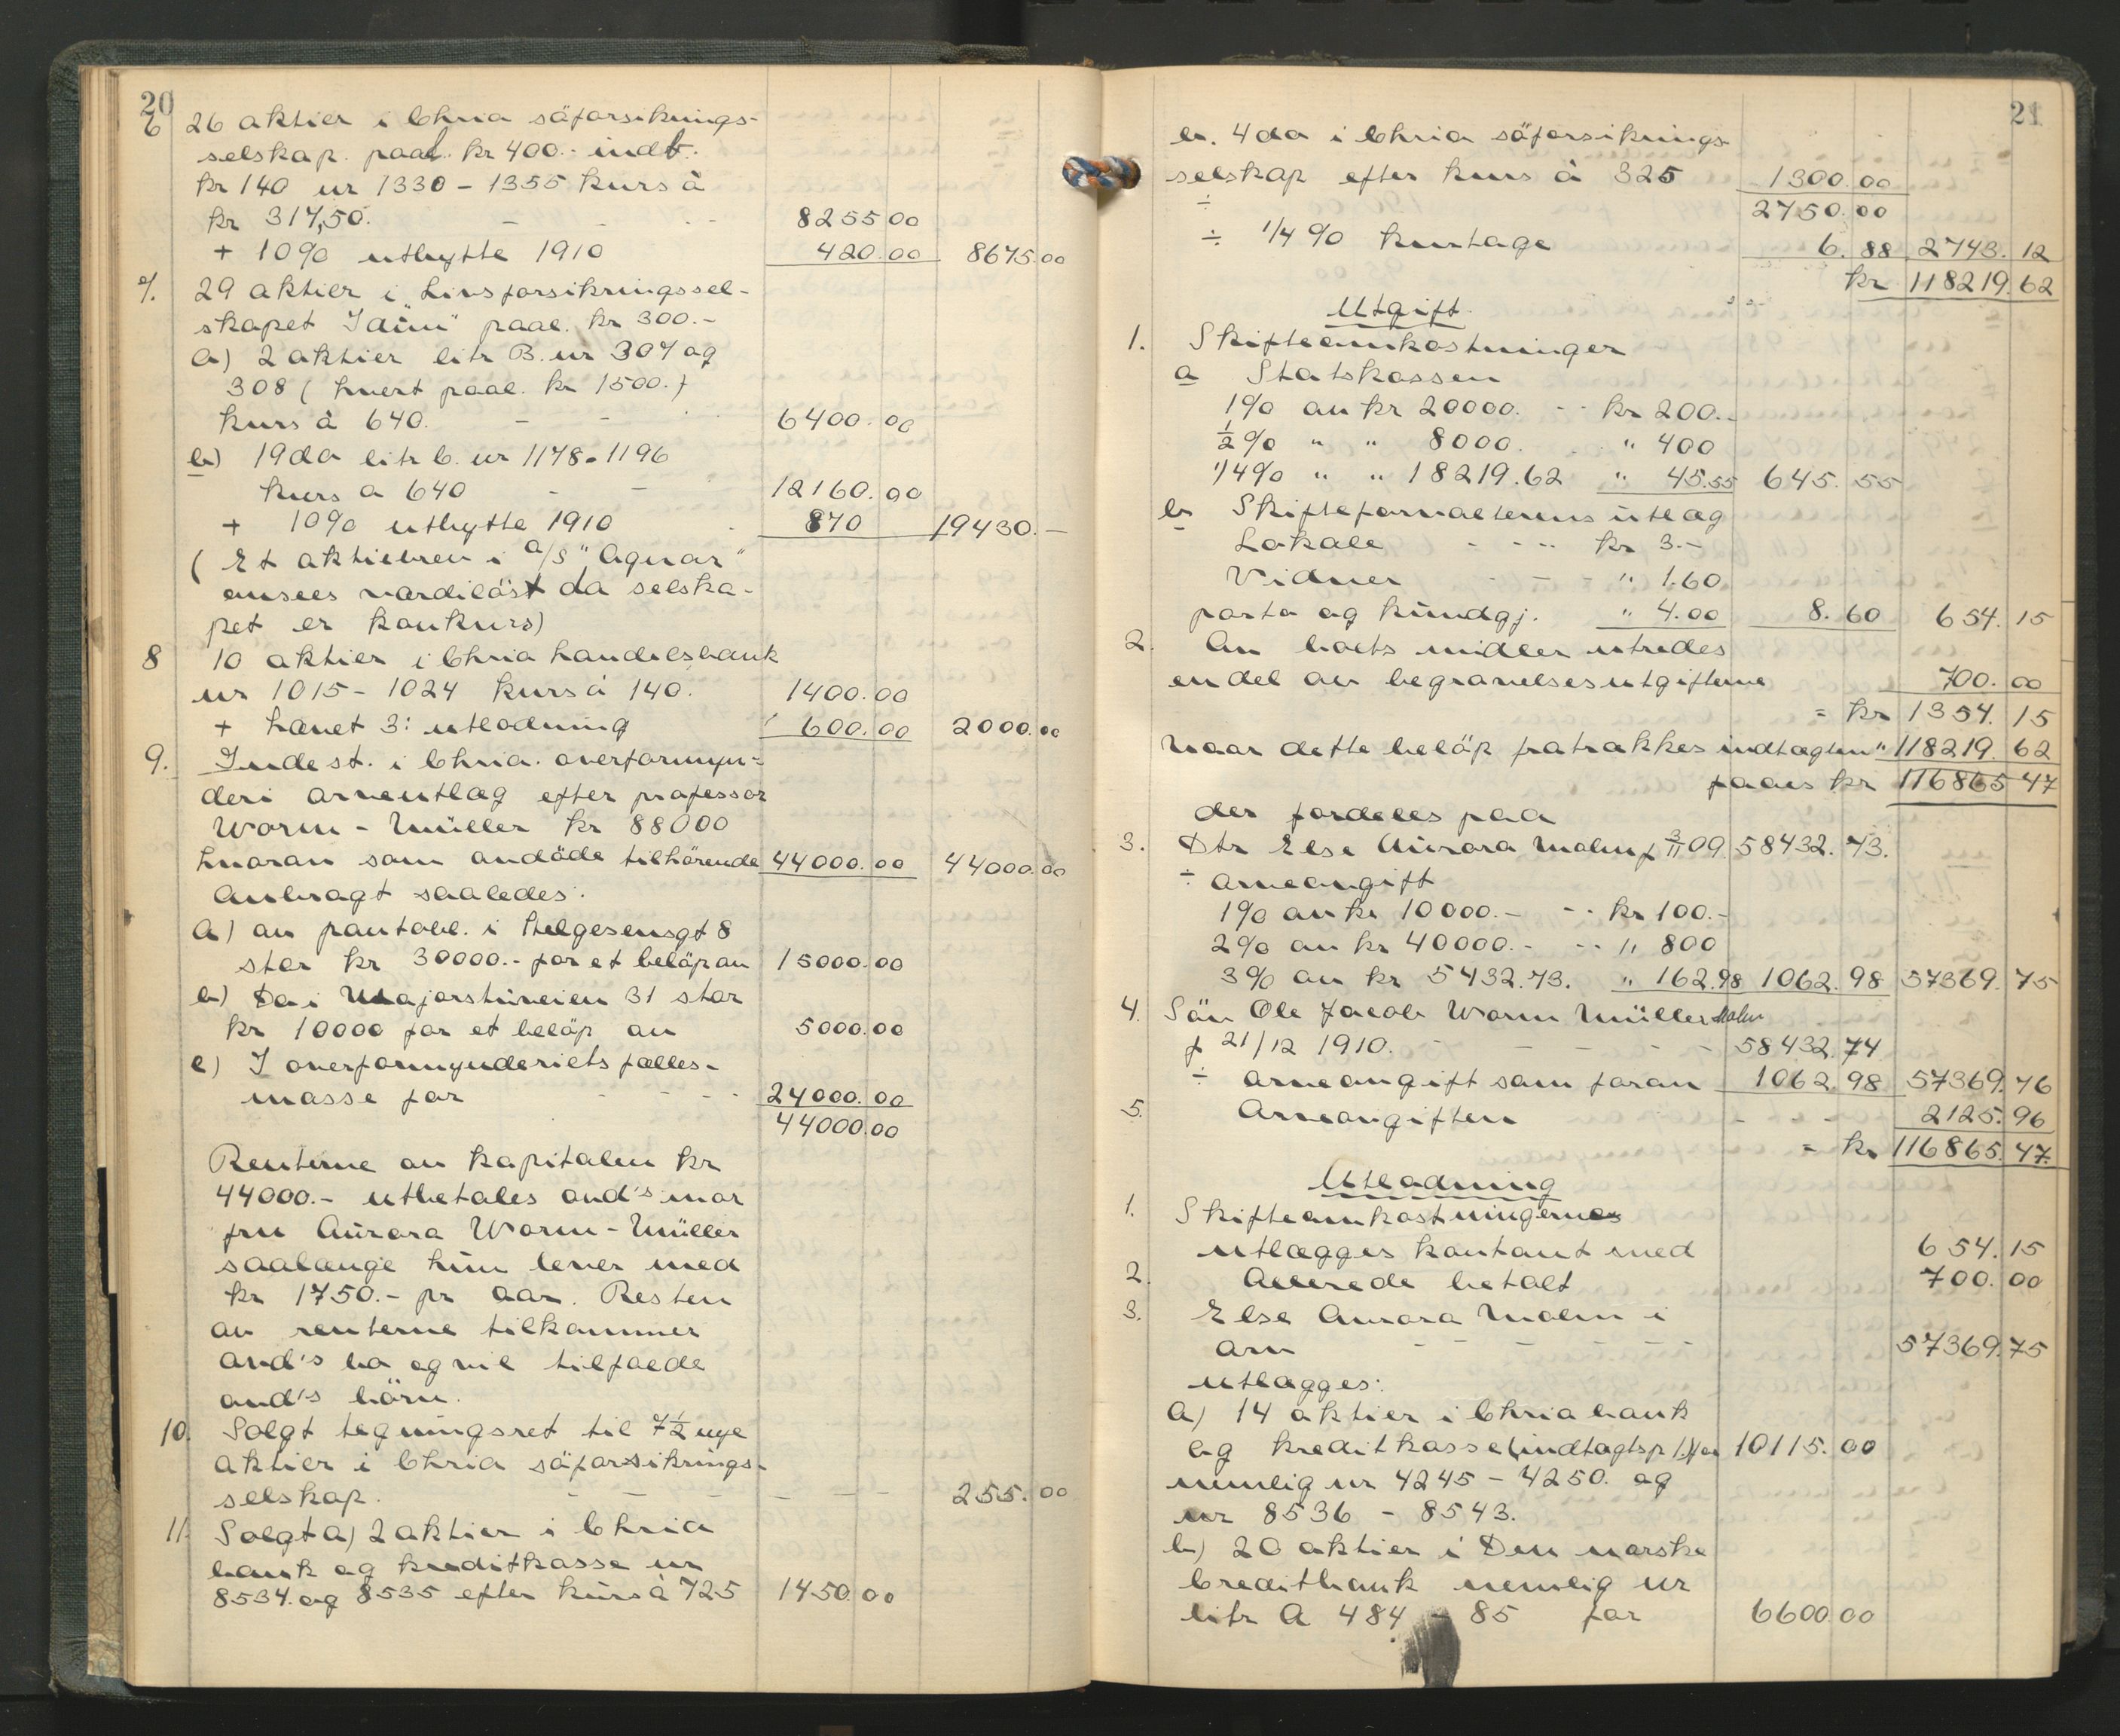 20
6 26 aktier i Chria söforsikrings-
selskap. paal. kr 400.- indb.
kr 140 nr 1330 - 1355 kurs à
kr 317,50. - - 8255 00
+ 10% utbytte 1910 420.00 8675.00
7. 29 aktier i Livsforsikringssel-
skapet "Idun" paal. kr 300.-
a) 2 aktier litr B. nr 307 og
308 (hvert paal. kr 1500.)
kurs à 640. - - 6400.00
b) 19 do litr C. nr 1178-1196
kurs a 640 - - 12160.00
+ 10% utbytte 1910 870 19430.-
(Et aktiebrev i a/s "Agnar"
ansees værdilöst da selska-
pet er konkurs)
8 10 aktier i Chria handelsbank
nr 1015 - 1024 kurs à 140. 1400.00
+ hævet 3: utlodning 600.00 2000.00
9. Indest. i Chria. overformyn-
deri arveutlæg efter professor
Worm-Müller kr 88000
hvorav som avdöde tilhörende 44000.00 44000.00
Anbragt saaledes:
a) av pantobl. i Helgesensgt 8
stor kr 30000.- for et belöp av 15000.00
b) Do i Majorstuveien 31 stor
kr 10000 for et belöp av 5000.00
c) I overformynderiets fælles-
masse for - - - - 24000.00
44000.00
Renterne av kapitalen kr
44000.- utbetales avd's mor
fru Aurora Worm-Müller
saalænge hun lever med
kr 1750.- pr aar. Resten
av renterne tilkommer
avd's bo og vil tilfalde
avd's börn.
10. Solgt tegningsret til 7½ nye
aktier i Chria söforsikrings-
selskap. - - - - - - 255.00
11. Solgt a) 2 aktier i Chria
bank og kreditkasse nr
8534. og 8535 efter kurs à 725 1450.00
21
b. 4 do i Chria söforsikrings-
selskap efter kurs à 325 1300.00
÷ 2750.00
÷ 1/4% kurtage 6.88 2743.12
kr 118219.62
Utgift.
1. Skifteomkostninger
a Statskassen
1% av kr 20000. - - kr 200.-
½% " " 8000. " 400
1/4% " " 18219.62 " 45.55 645.55
b Skifteforvalterens utlæg
Lokale - - - kr 3.-
Vidner - - - " 1.60
porto og kundgj. " 4.00 8.60 654.15
2. Av boets midler utredes
en del av begravelsesutgifterne 700.00
= kr 1354.15
Naar dette belöp fratrækkes indtægten " 118219.62
faaes kr 116865 47
der fordeles paa
3. Dtr Else Aurora Malm f 3/11 09 58432.73.
÷ arveavgift
1% av kr 10000.- - - kr 100.-
2% av kr 40000.- - - " 800
3% av kr 5432.73. " 162.98 1062.98 57369.75
4. Sön Ole Jacob Worm Müller Malm
f 21/12 1910. - - - - - 58432.74
÷ arveavgift som foran 1062.98 57369.76
5. Arveavgiften - - - - 2125.96
= kr 116865.47.
Utlodning
1. Skifteomkostningernes
utlægges kontant med 654.15
2. Allerede betalt 700.00
3. Else Aurora Malm i
arv - - - - - - 57369.75
utlægges:
a) 14 aktier i Chria bank
og kreditkasse (indtægtsp 1) for 10115.00
nemlig nr 4245 - 4250. og
nr 8536 - 8543.
b) 20 aktier i Den norske
Creditbank nemlig nr
litr A 484 - 85 for 6600.00